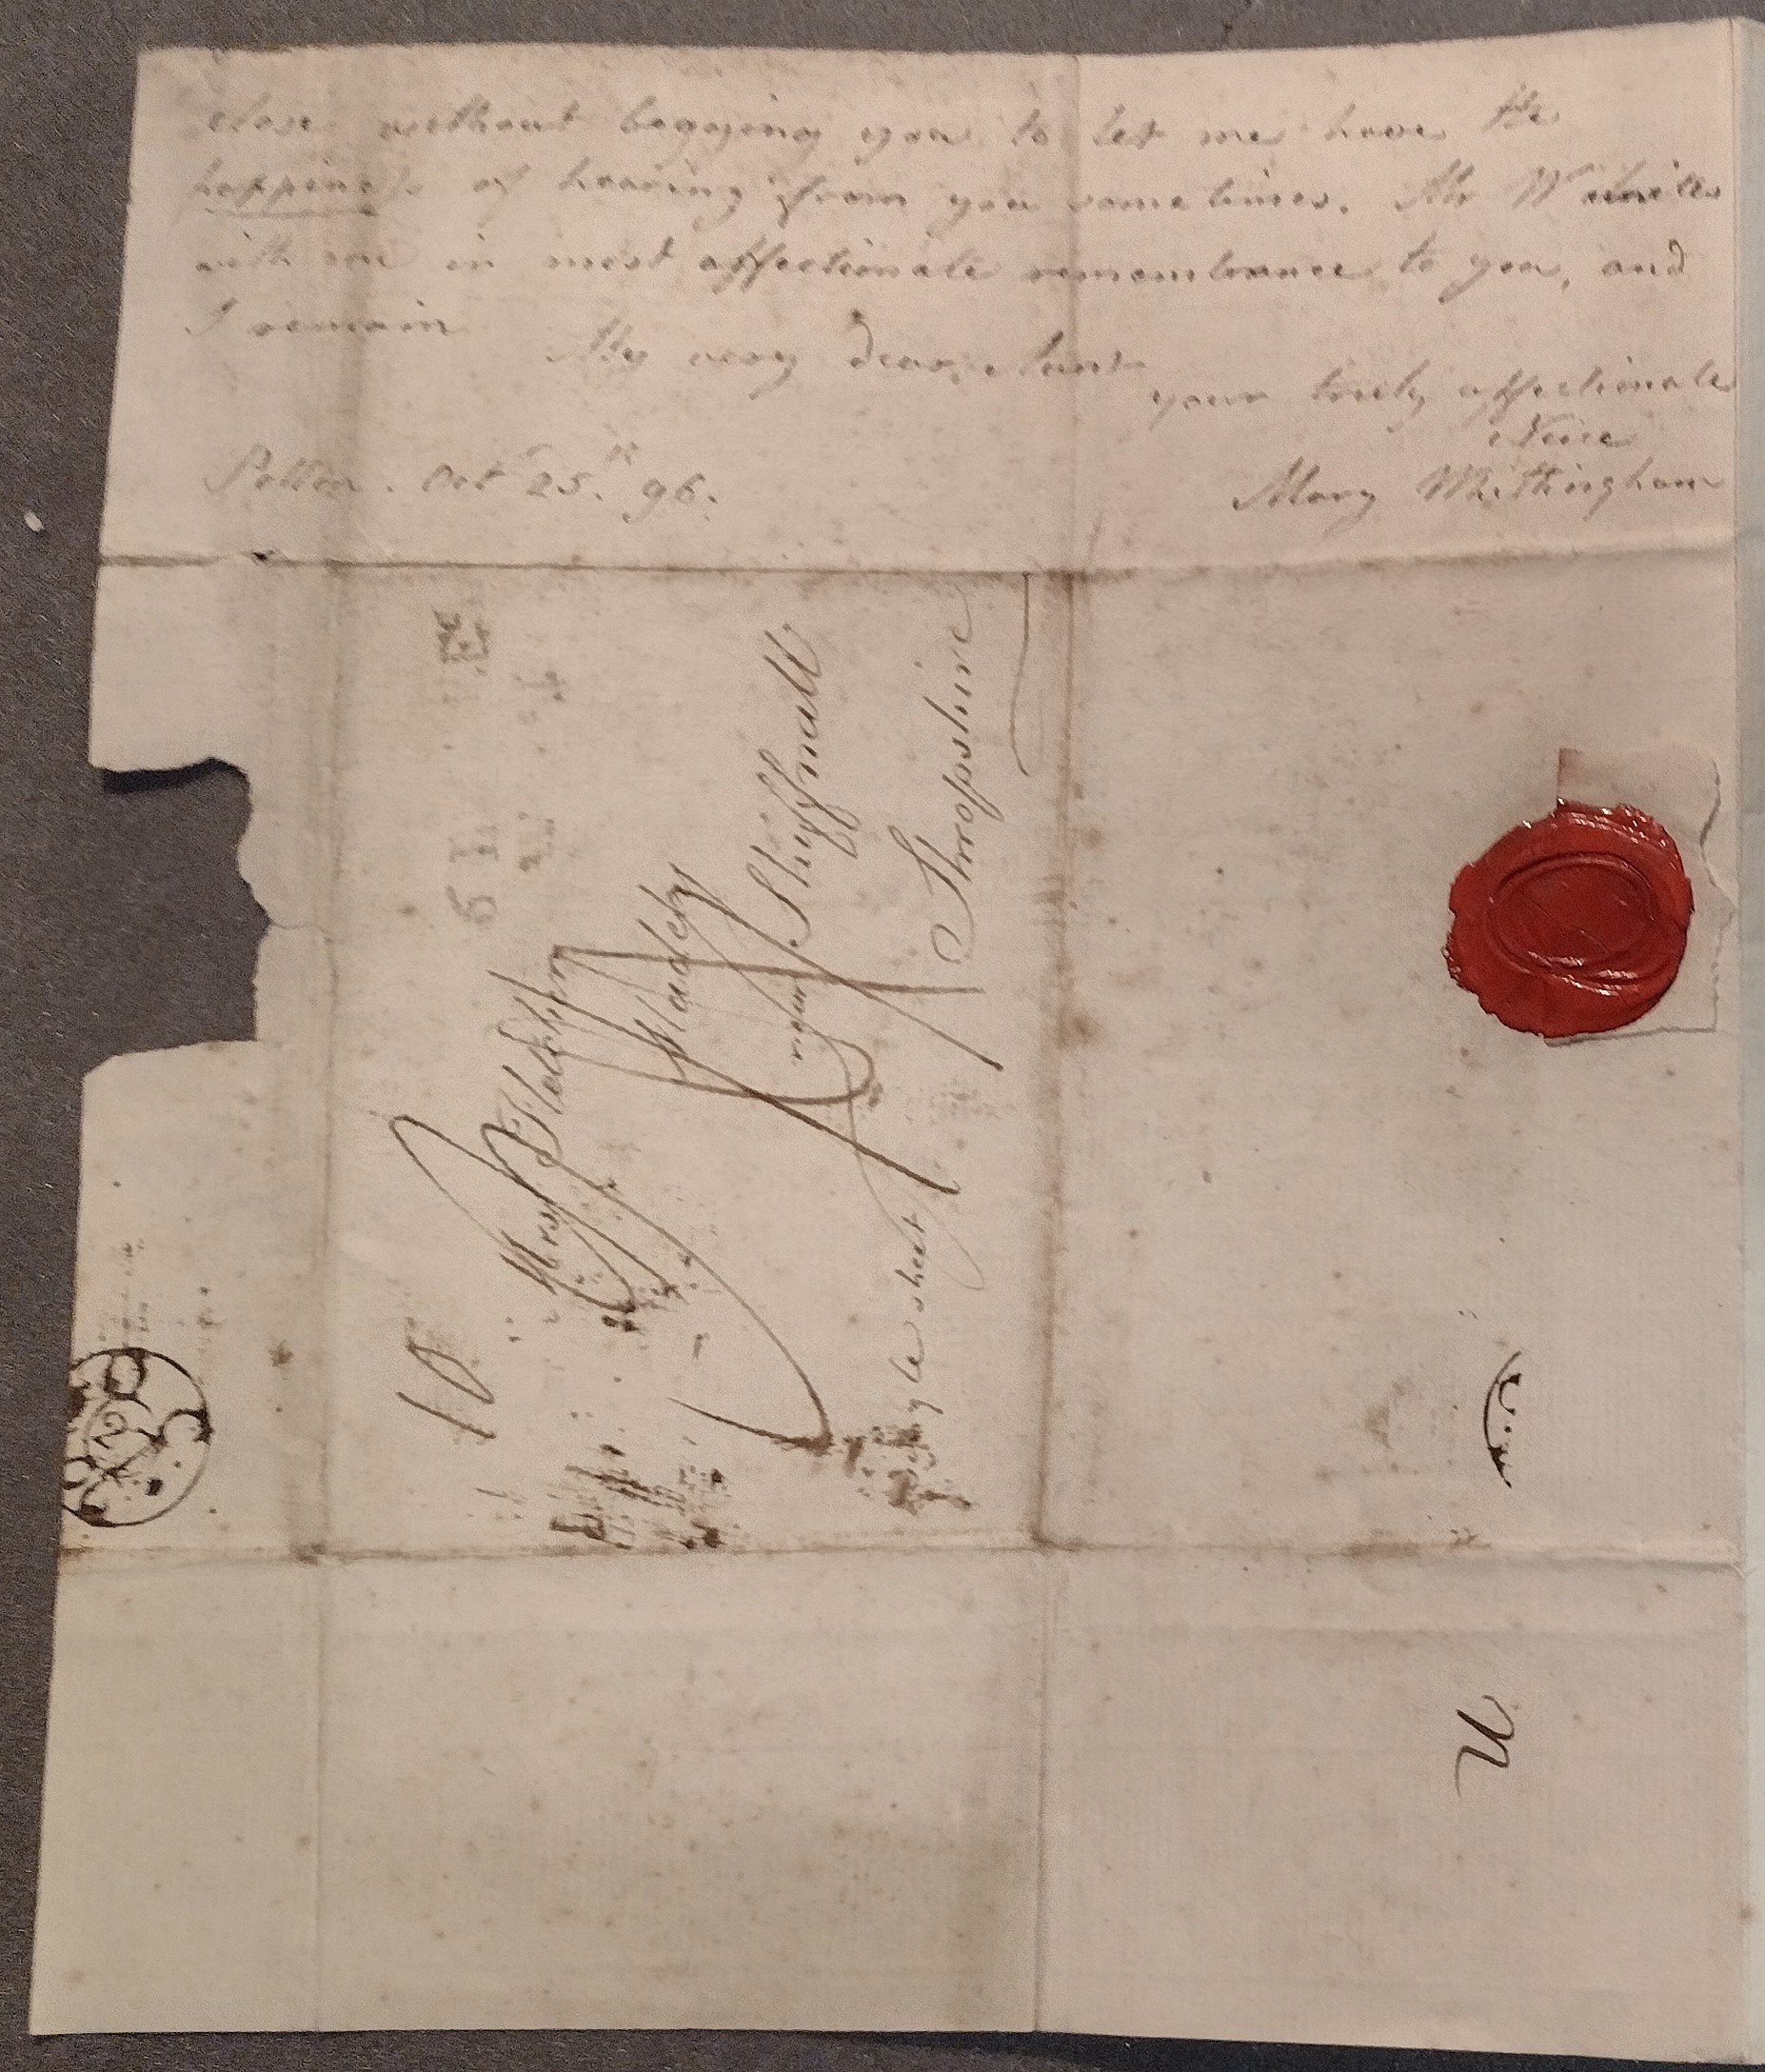 close without begging you to let me have the
happiness of hearing from you sometimes. Mr W unites
with me in most affectionate remembrance to you, and
I remain
My very dear Aunt
your truly affectionate
Niece
Mary Whittingham
Oct 25th 96.
10
Mrs Fletcher
Madeley
near Shiffnall
Shropshire
single sheet